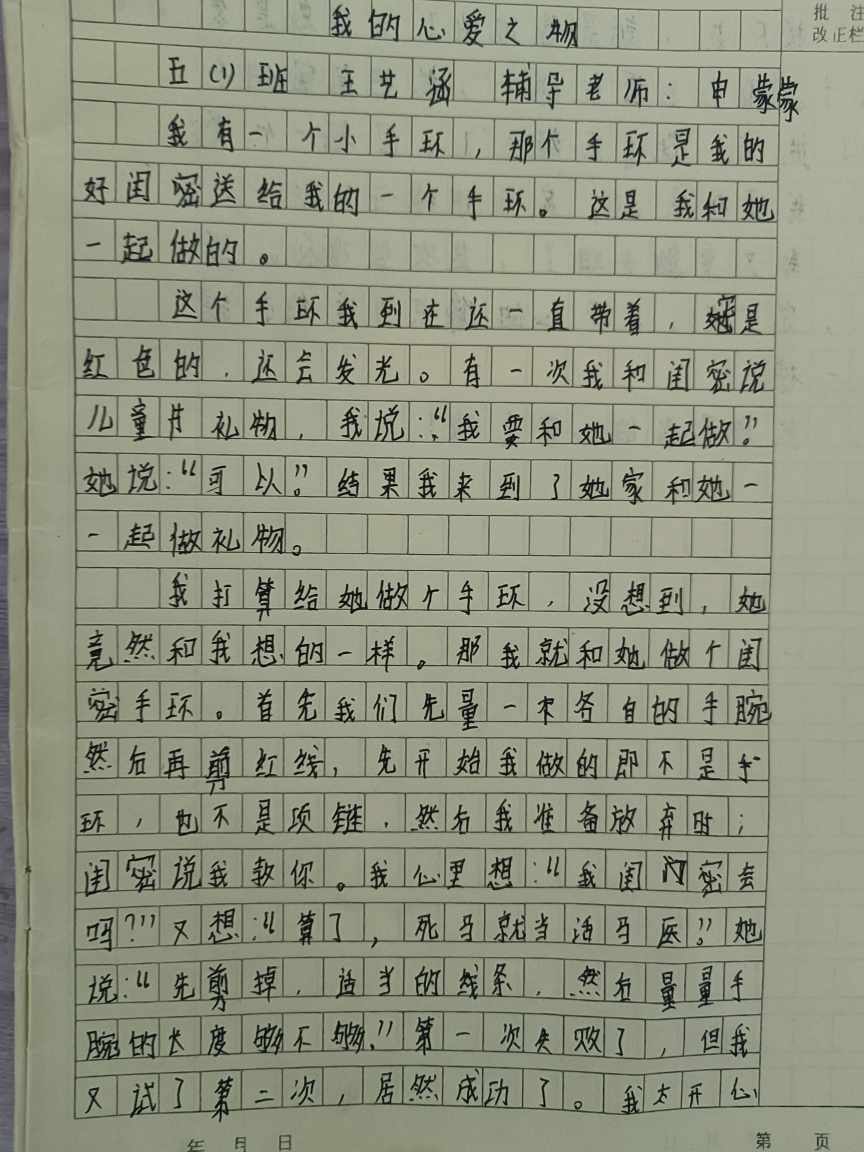 批 注
改正栏
我的心爱之物
五(1)班 王艺涵 辅导老师：申蒙蒙
我有一个小手环，那个手环是我的
好闺密送给我的一个手环。这是我和她
一起做的。
这个手环我到在还一直带着，她是
红色的，还会发光。有一次我和闺密说
儿童片礼物，我说：“我要和她一起做”。
她说：“可以”。结果我来到了她家和她一
一起做礼物。
我打算给她做个手环，没想到，她
竟然和我想的一样。那我就和她做个闺
密手环。首先我们先量一木各自的手腕
然后再剪红线，先开始我做的即不是手
环，也不是项链，然后我准备放弃时；
闺密说我教你。我心里想：“我闺密会
吗？”又想：“算了，死马就当活马医”。她
说：“先剪掉，适当的线条，然后量量手
腕的长度够不够。”第一次失败了，但我
又试了第二次，居然成功了。我太开心
年 月 日
第 页